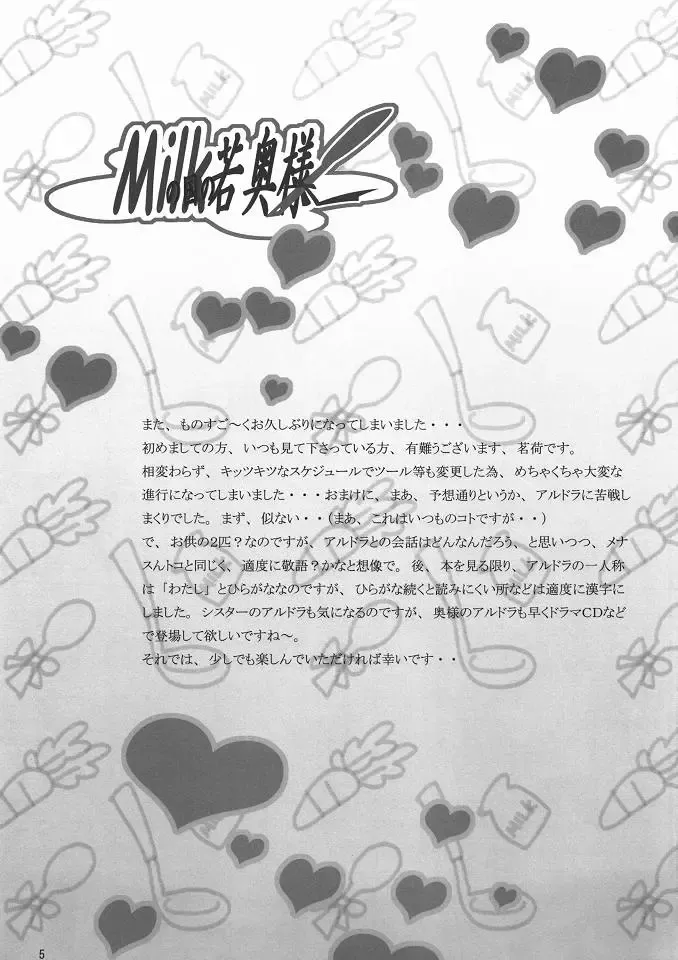 MILK
Milkの国の苦奥様
また、ものすご～くお久しぶりになってしまいました・・・
初めましての方、いつも見て下さっている方、有難うございます、茗荷です。
相変わらず、キッツキツなスケジュールでツール等も変更した為、めちゃくちゃ大変な
進行になってしまいました・・・おまけに、まあ、予想通りというか、アルドラに苦戦し
まくりでした。まず、似ない・・（まあ、これはいつものコトですが・・）
で、お供の2匹？なのですが、アルドラとの会話はどんなんだろう、と思いつつ、メナ
スんトコと同じく、適度に敬語？かなと想像で。後、本を見る限り、アルドラの一人称
は「わたし」とひらがななのですが、ひらがな続くと読みにくい所などは適度に漢字に
しました。シスターのアルドラも気になるのですが、奥様のアルドラも早くドラマCDなど
で登場して欲しいですね～。
それでは、少しでも楽しんでいただければ幸いです・・
MILK
MILK
MILK
5